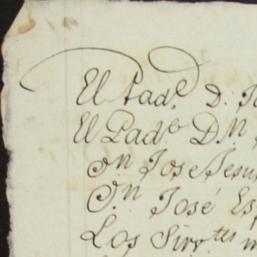 El Pad.e D. Jo
El Pad.e D.n
D.n Jose Jesu
D.n José Es
Los Sirv.tes